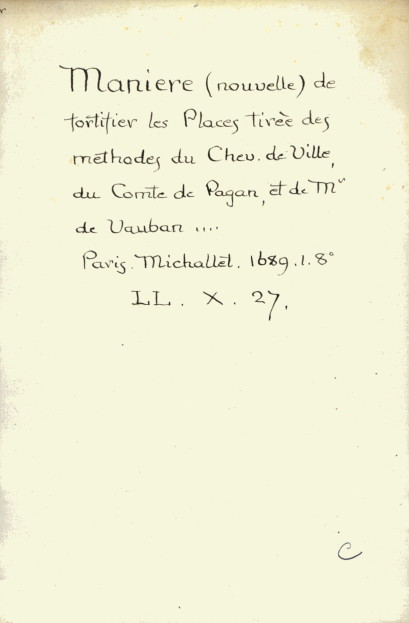 Maniere (nouvelle) de
fortifier les Places tirèe des
méthodes du Chev. de Ville,
du Comte de Pagan, et de Mr
de Vauban ....
Paris. Michallet. 1689. 1. 8°
LL. X. 27.
C